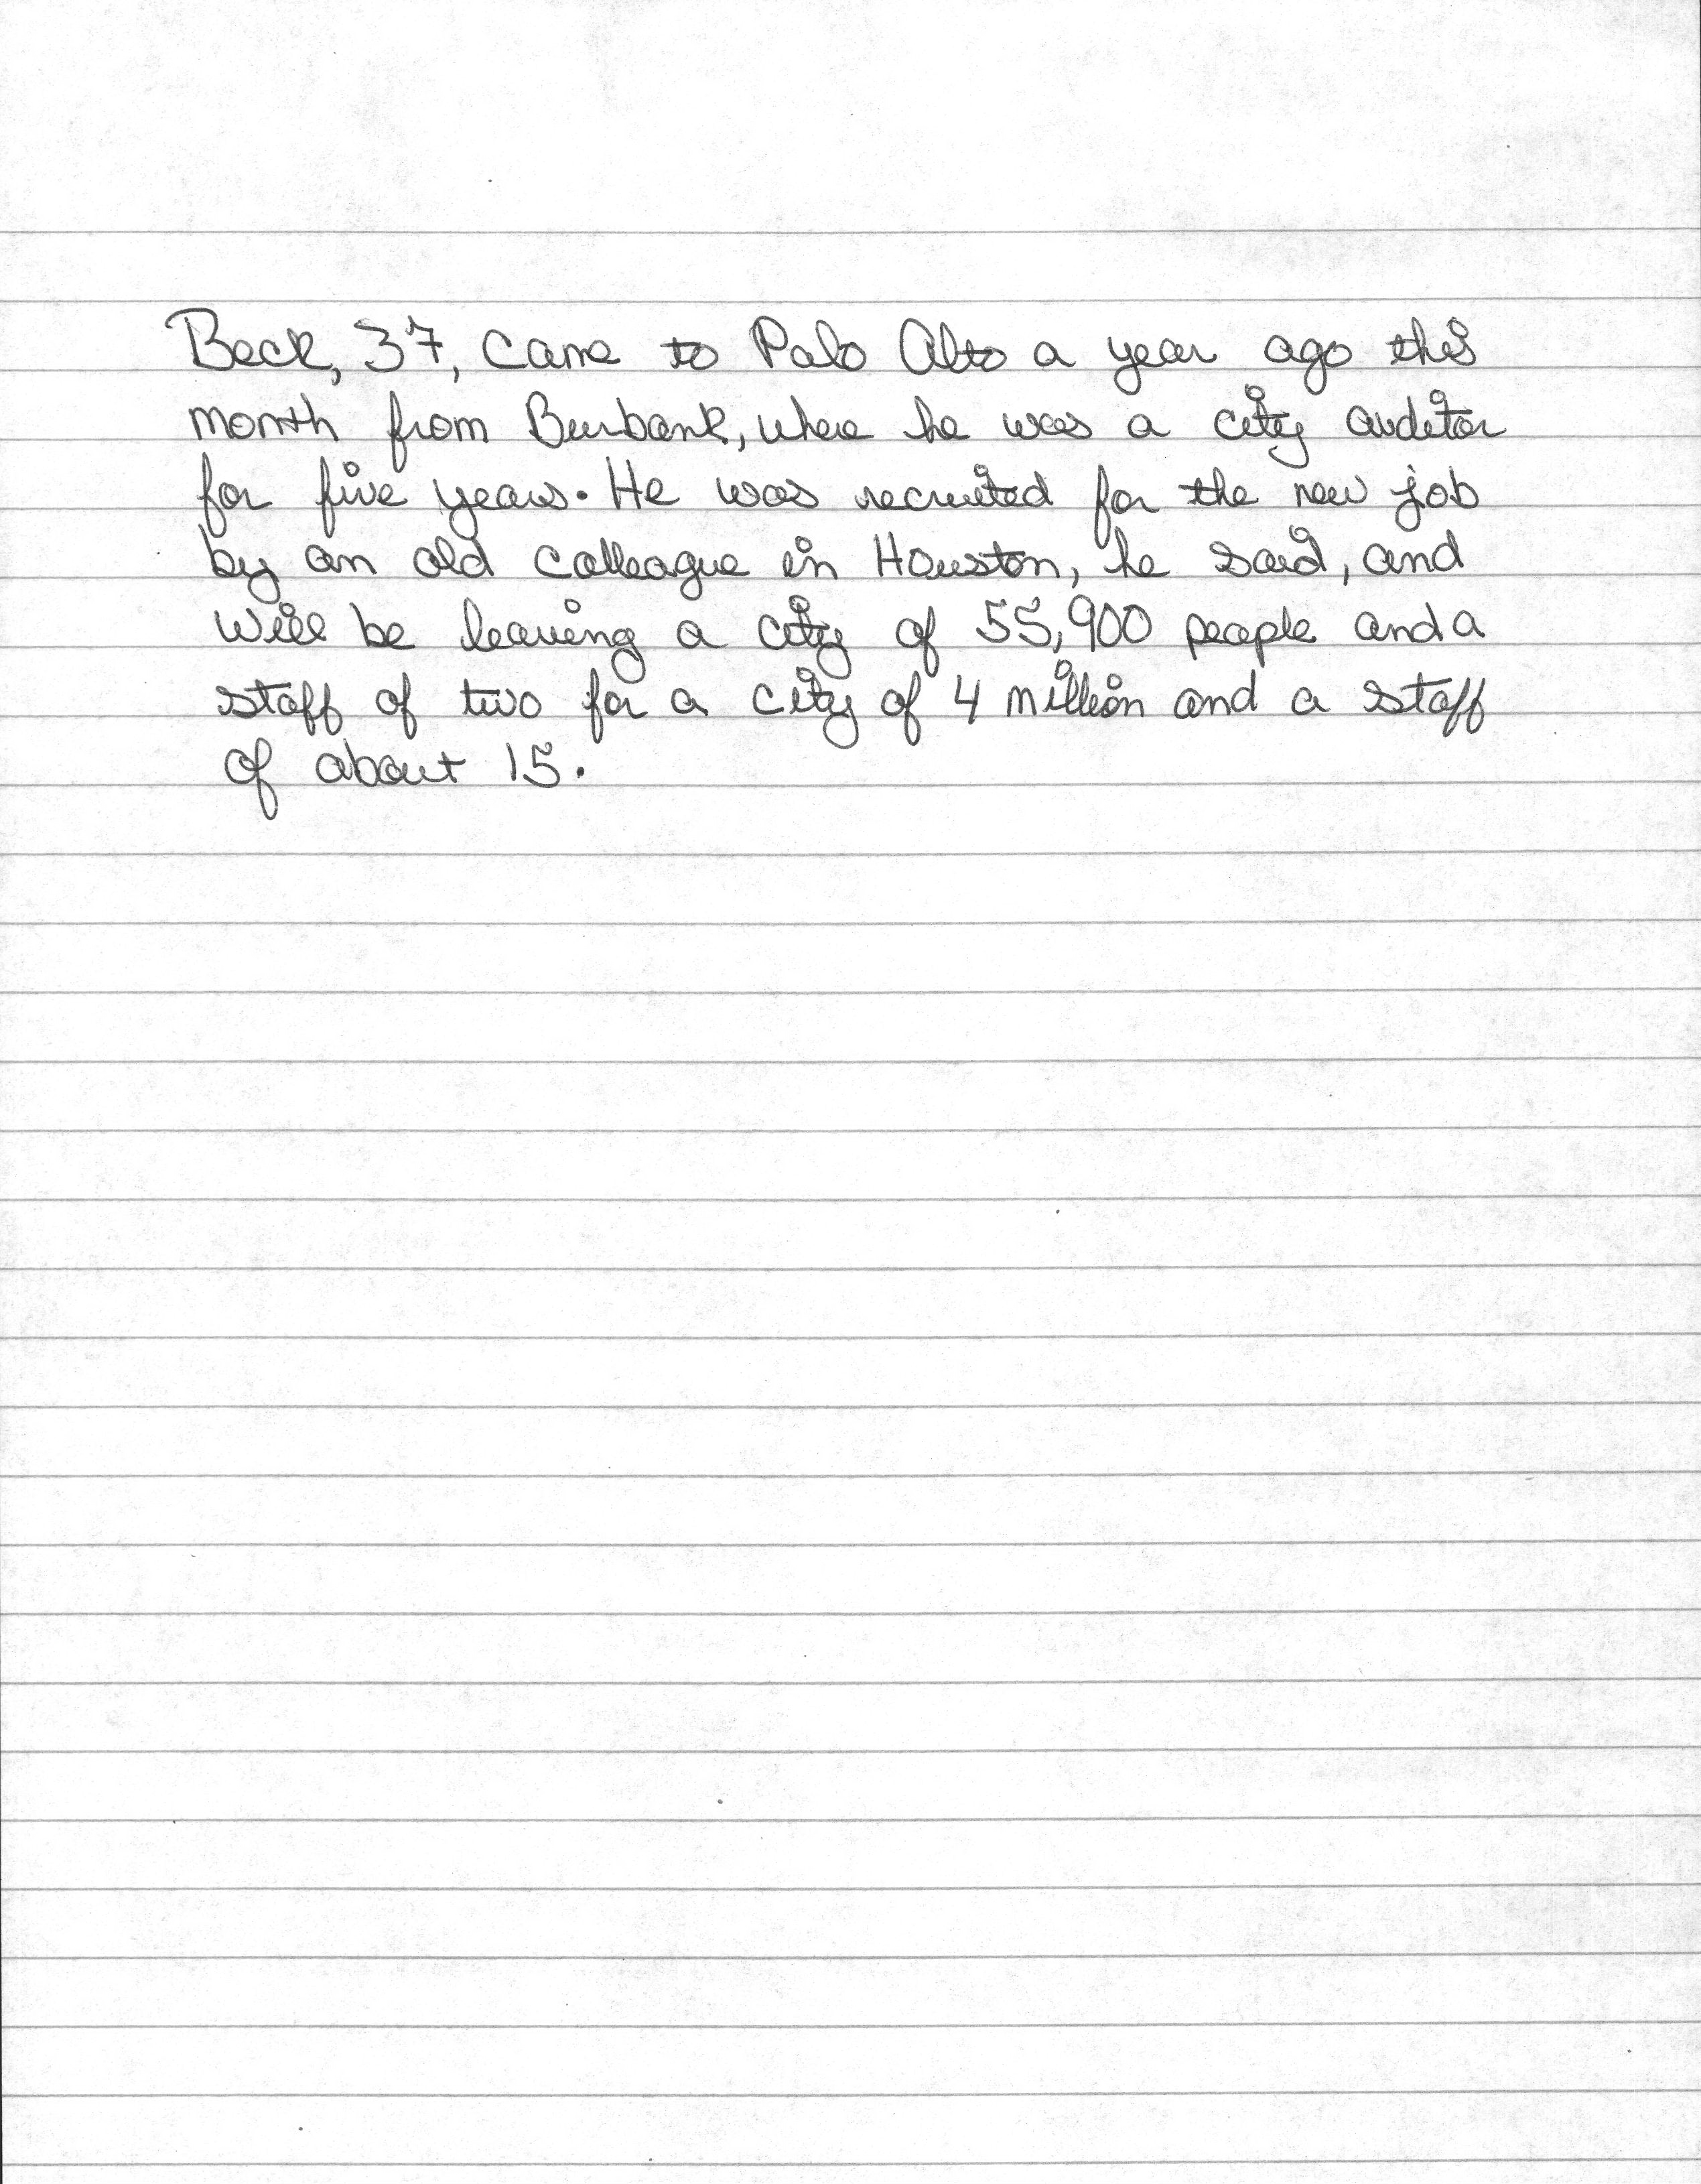 Beck, 37, came to Palo Alto a year ago this
month from Burbank, where he was a city auditor
for five years. He was recruited for the new job
by an old colleague in Houston, he said, and
will be leaving a city of 55,900 people and a
staff of two for a city of 4 million and a staff
of about 15.